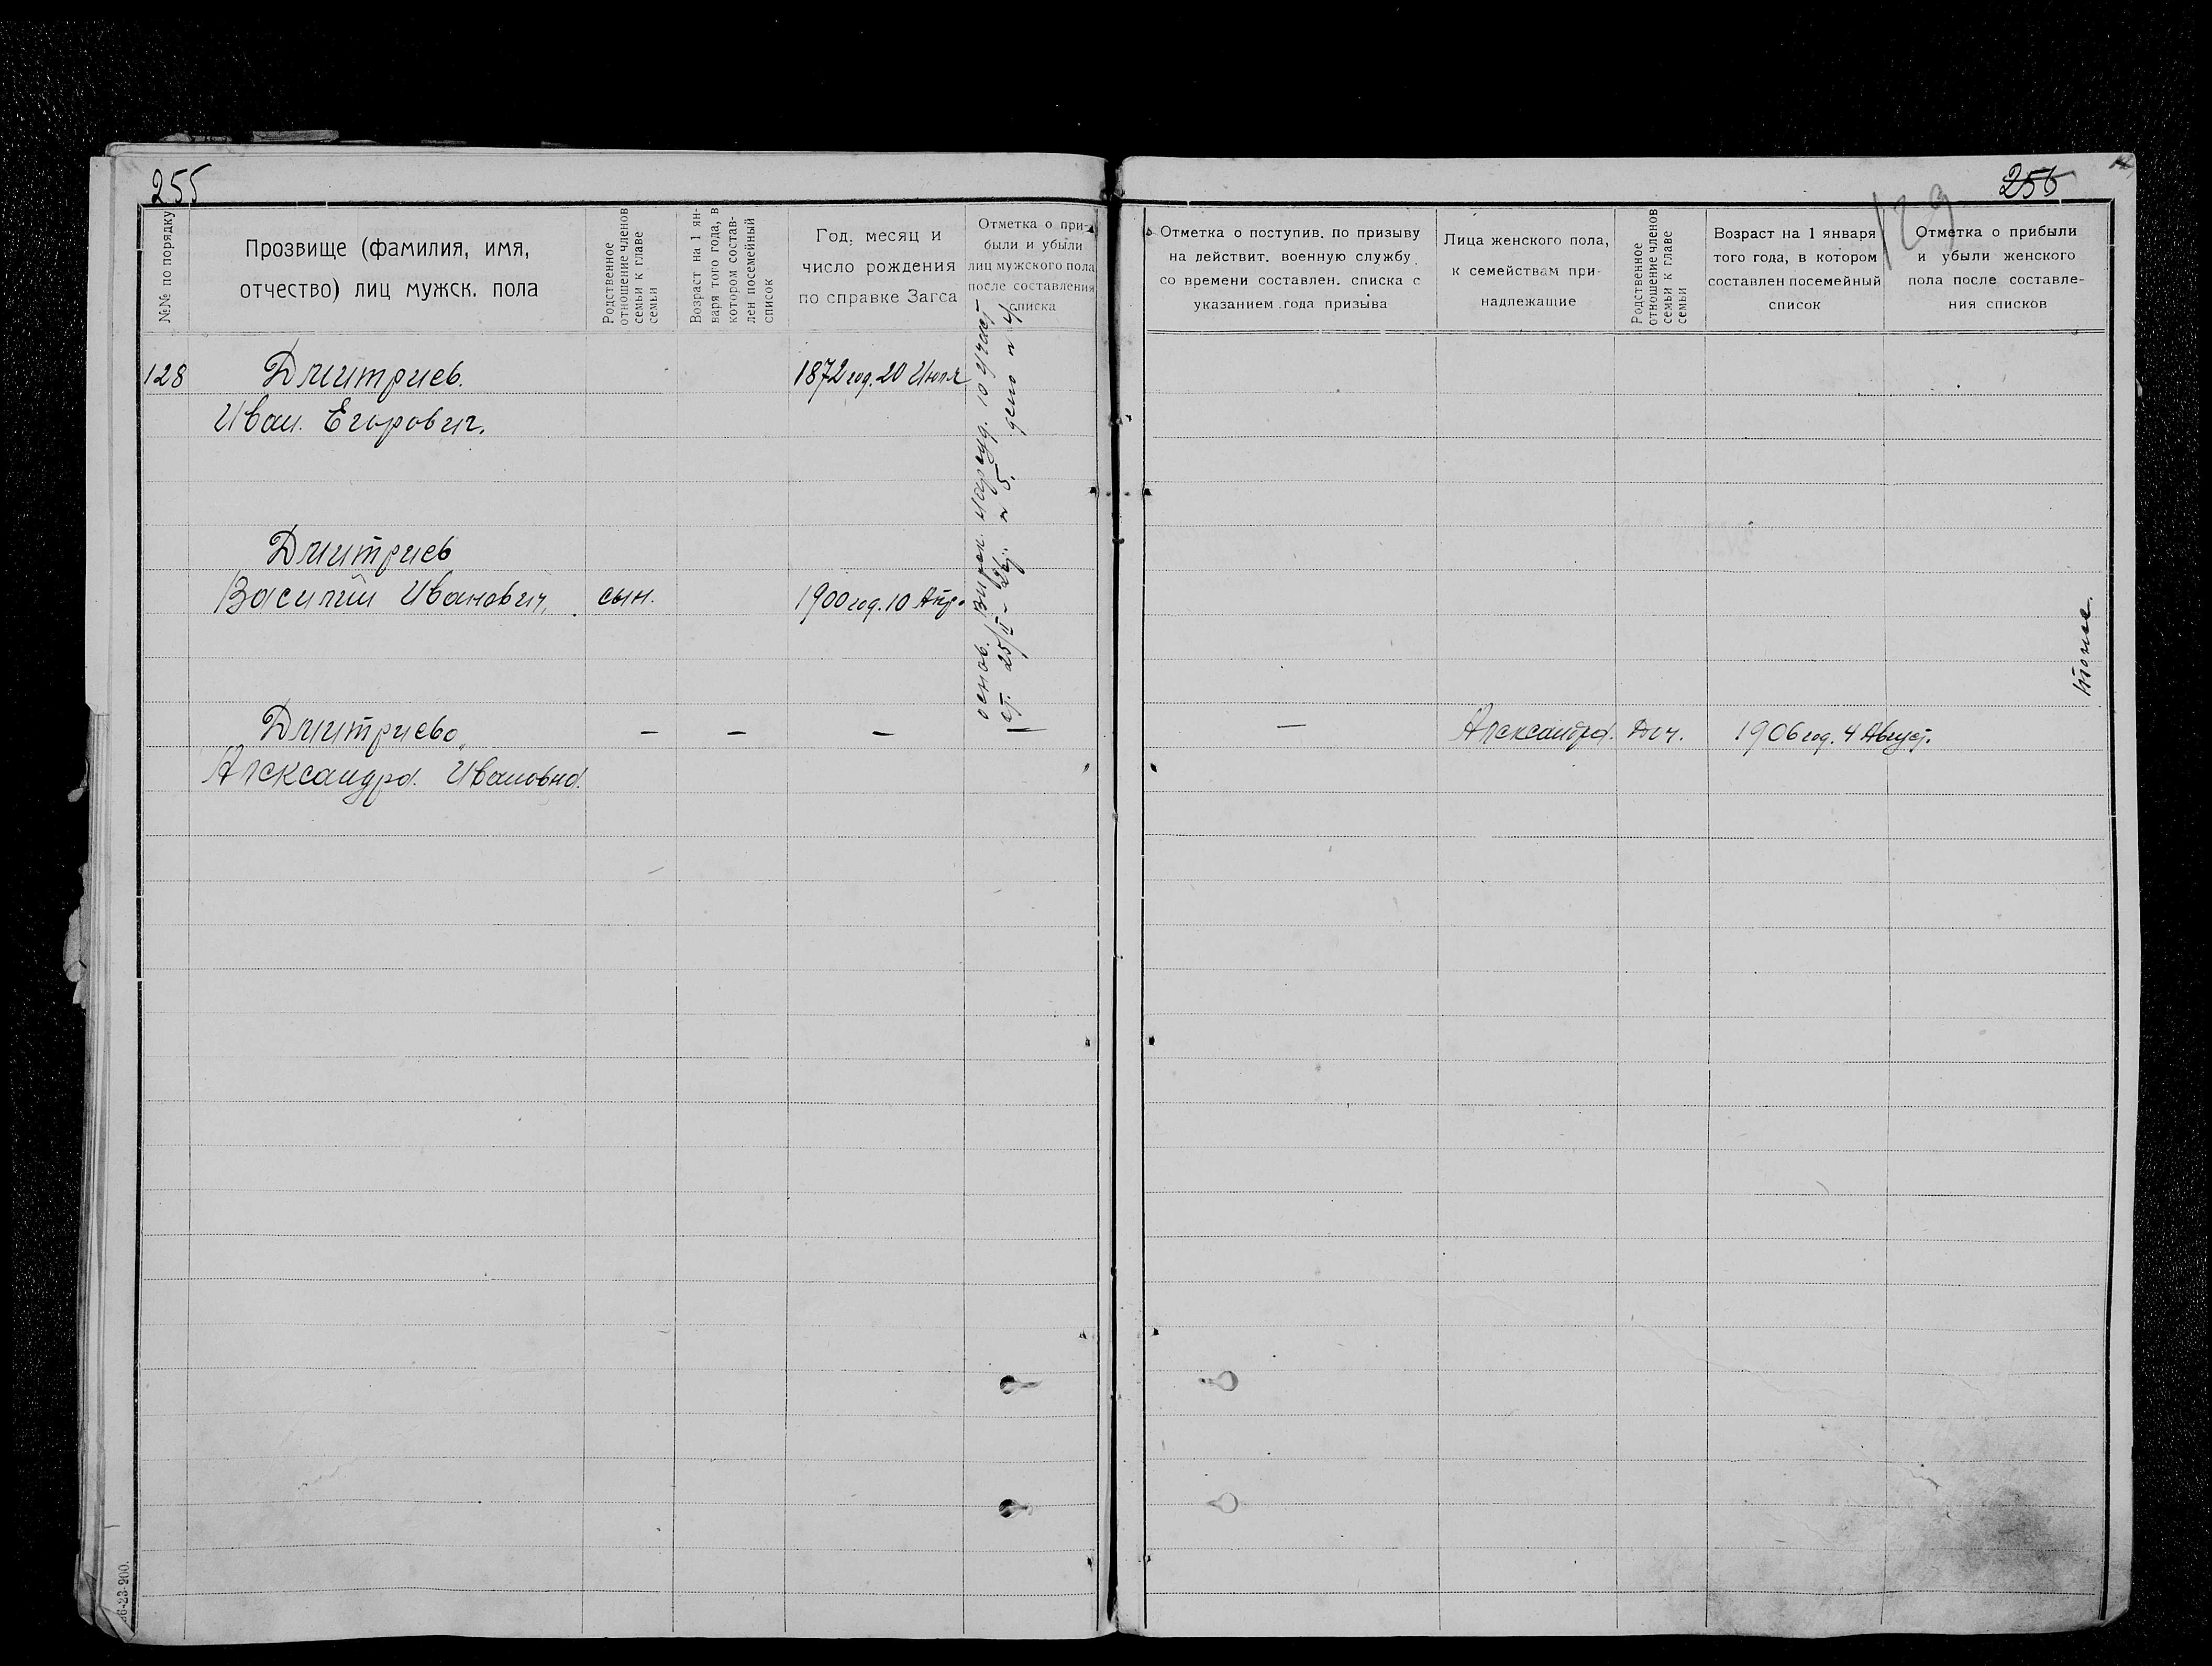 255
№№ по порядку
Прозвище (фамилия, имя,
отчество) лиц мужск. пола
Родственное
отношение членов
семьи к главе
семьи
Возраст на 1 ян-
варя того года, в
котором состав-
лен посемейный
список
Год, месяц и
число рождения
по справке Загса
Отметка о при-
были и убыли
лиц мужского пола
после составления
списка
128
Дмитриев.
Иван. Егорович.
1872 год. 20 Июля
Дмитриев
Василий Иванович.
сын.
1900 год. 10 Апр.
основ.
нарсуд. 10 участ
25/II – 24г. № 5. дело № 4
Дмитриева
Александра. Ивановна.
— — —
26-23-900.
256
129
Отметка о поступив. по призыву
на действит. военную службу
со времени составлен. списка с
указанием года призыва
Лица женского пола,
к семействам при-
надлежащие
Родственное
отношение членов
семьи к главе
семьи
Возраст на 1 января
того года, в котором
составлен посемейный
список
Отметка о прибыли
и убыли женского
пола после составле-
ния списков
—
Александра.
Доч.
1906 год. 4 Август.
тоже.